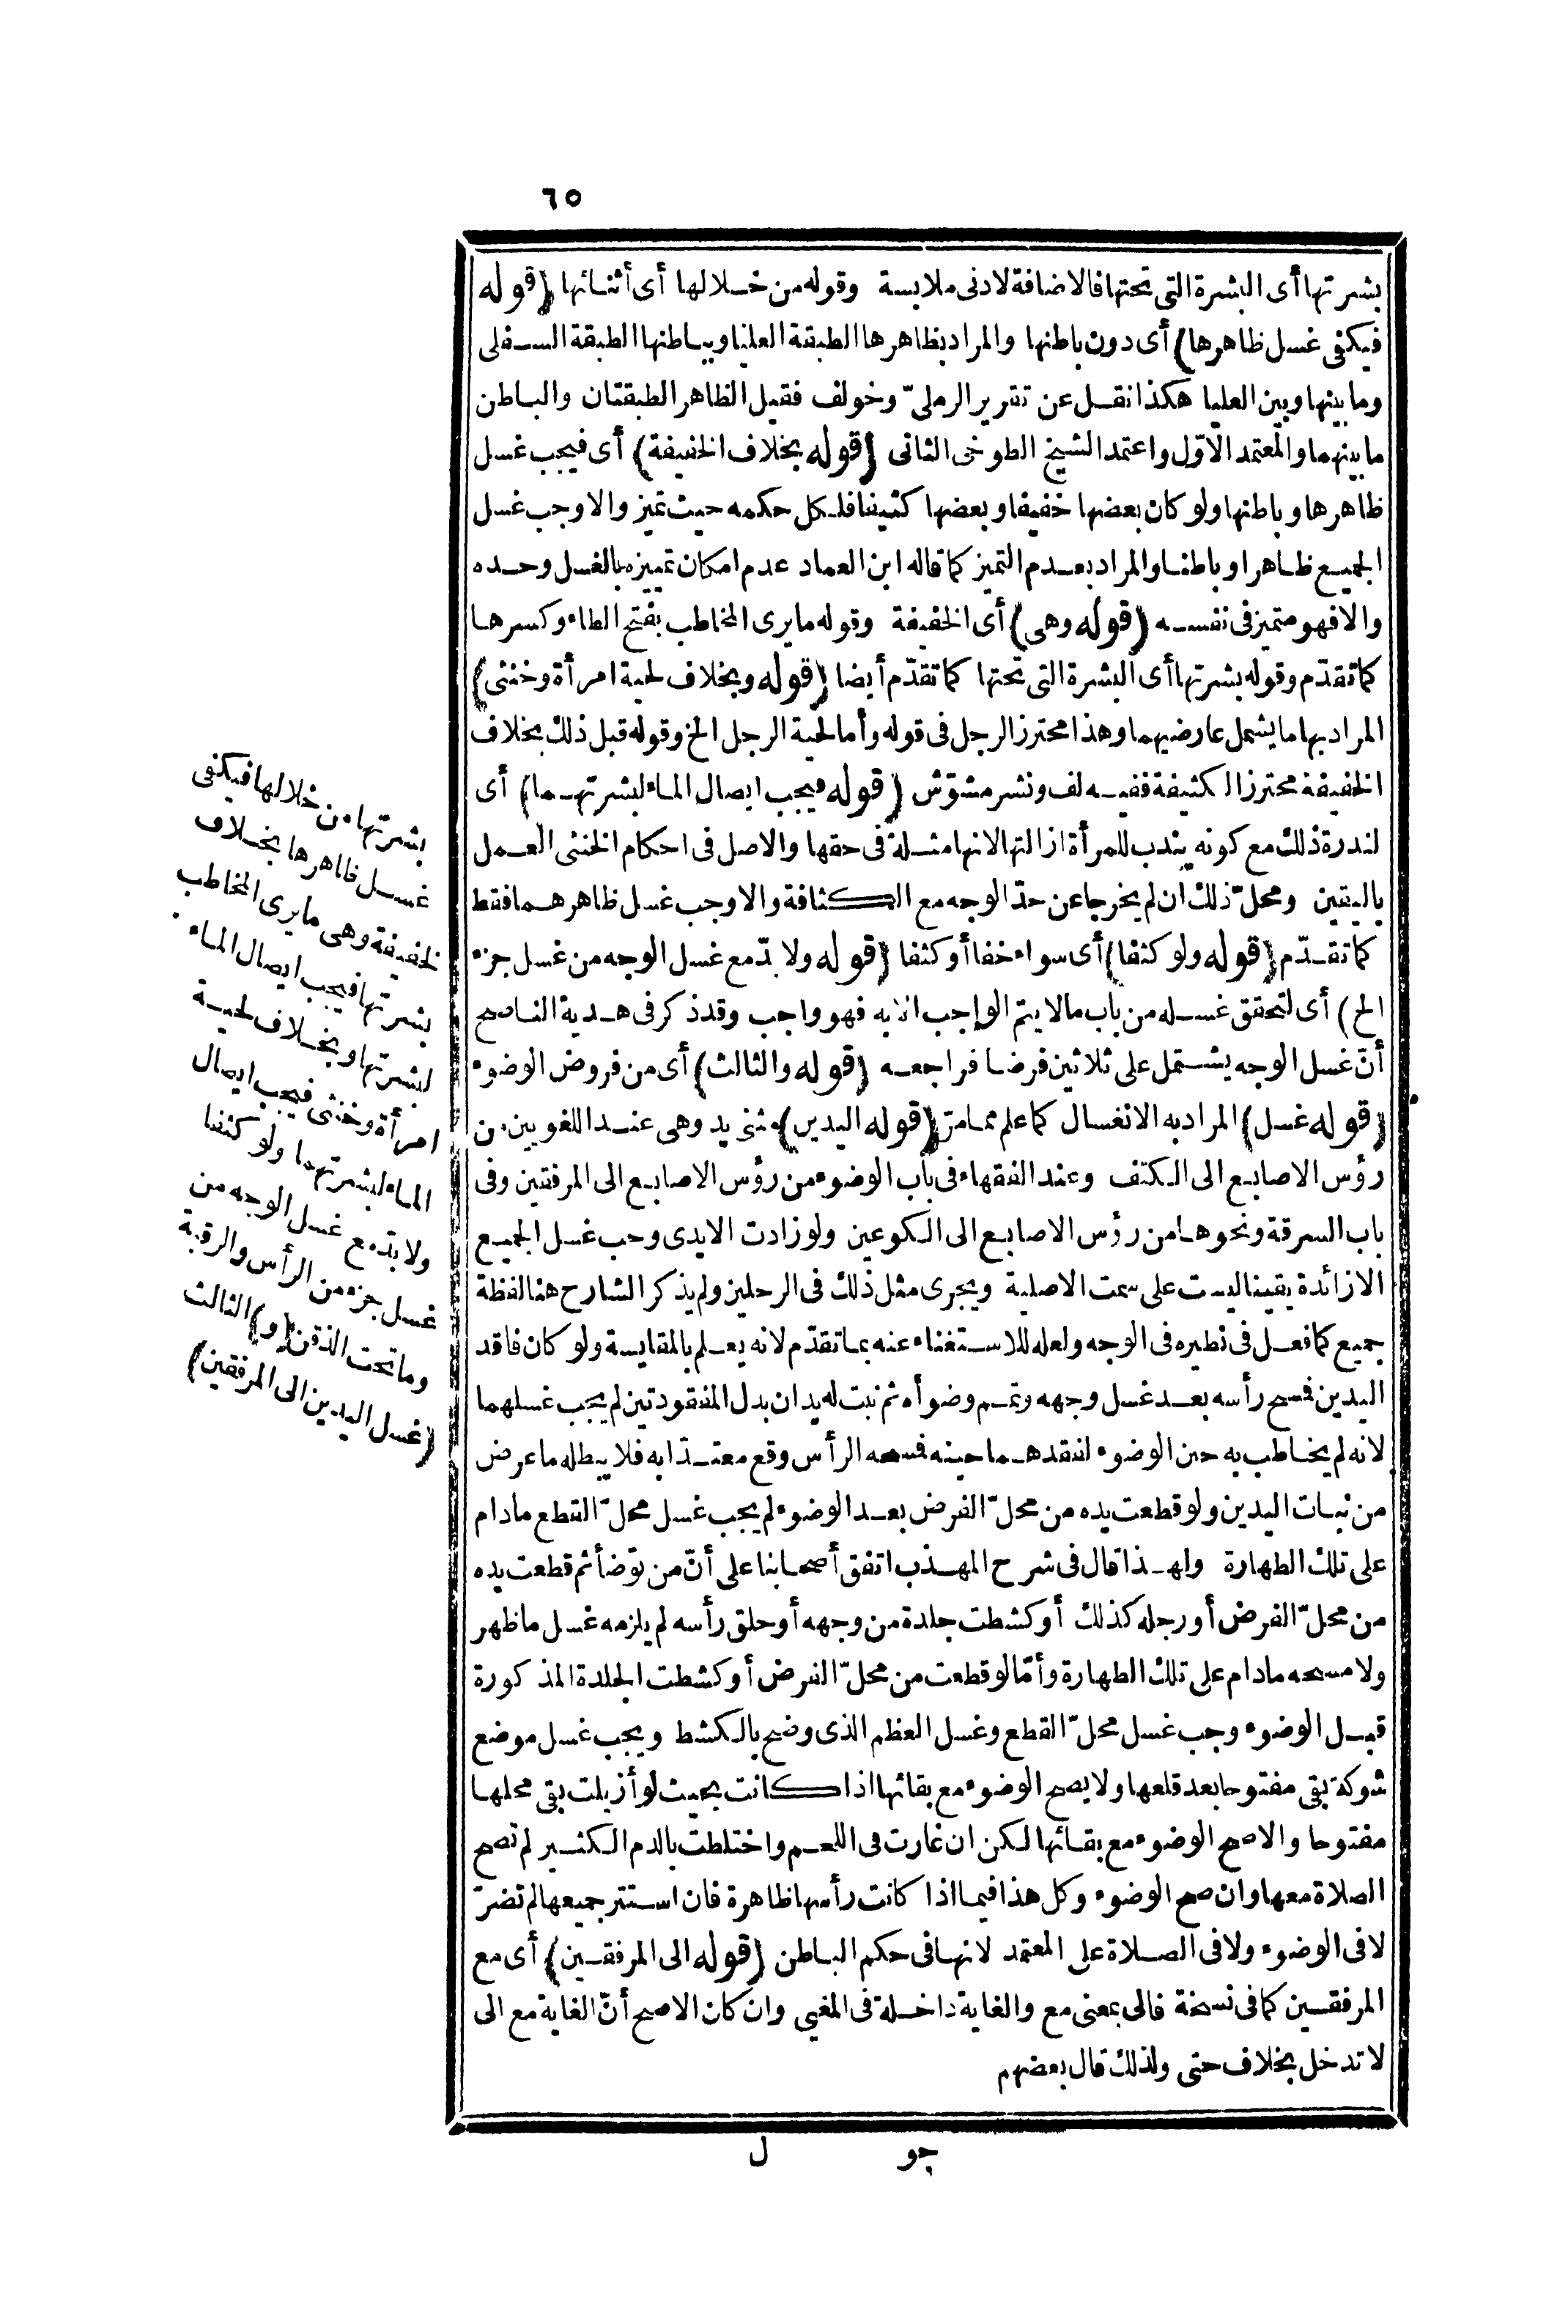 ٦٥
بشرتها أى البشرة التى تحتها فالاضافة لادنى ملابسة وقوله من خلالها أى أثنائها (قوله
فيكفى غسل ظاهرها) أى دون باطنها والمراد بظاهرها الطبقة العليا وبباطنها الطبقة السفلى
وما بينها وبين العليا هكذا نقل عن تقرير الرملىّ وخولف فقيل الظاهر الطبقتان والباطن
ما بينهما والمعتمد الاوّل واعتمد الشيخ الطوخى الثانى (قوله بخلاف الخفيفة) أى فيجب غسل
ظاهرها وباطنها ولو كان بعضها خفيفا وبعضها كثيفا فلكل حكمه حيث تميز والا وجب غسل
الجميع ظاهرا وباطنا والمراد بعدم التميز كما قاله ابن العماد عدم امكان تمييزه بالغسل وحده
والا فهو متميز فى نفسه (قوله وهى) أى الخفيفة وقوله ما يرى المخاطب بفتح الطاء وكسرها
كما تقدّم وقوله بشرتها أى البشرة التى تحتها كما تقدّم أيضا (قوله وبخلاف لحية امرأة وخنثى)
المراد بها ما يشمل عارضيهما وهذا محترز الرجل فى قوله وأما لحية الرجل الخ وقوله قبل ذلك بخلاف
الخفيفة محترز الكثيفة ففيه لف ونشر مشوّش (قوله فيجب ايصال الماء لبشرتهما) أى
لندرة ذلك مع كونه يندب للمرأة ازالتها لانها مثلة فى حقها والاصل فى احكام الخنثى العمل
باليقين ومحلّ ذلك ان لم يخرجا عن حدّ الوجه مع الكثافة والا وجب غسل ظاهرهما فقط
كما تقدّم (قوله ولو كثفا) أى سواء خفا أو كثفا (قوله ولا بدّ مع غسل الوجه من غسل جزء
الخ) أى لتحقق غسله من باب ما لا يتم الواجب الا به فهو واجب وقد ذكر فى هدية الناصح
أنّ غسل الوجه يشتمل على ثلاثين فرضا فراجعه (قوله والثالث) أى من فروض الوضوء
(قوله غسل) المراد به الانغسال كما علم مما مرّ (قوله اليدين) مثنى يد وهى عند اللغويين من
رؤس الاصابع الى الكتف وعند الفقهاء فى باب الوضوء من رؤس الاصابع الى المرفقين وفى
باب السرقة ونحوها من رؤس الاصابع الى الكوعين ولو زادت الايدى وجب غسل الجميع
الا زائدة يقينا ليست على سمت الاصلية ويجرى مثل ذلك فى الرجلين ولم يذكر الشارح هنا لفظة
جميع كما فعل فى نظيره فى الوجه ولعله للاستغناء عنه بما تقدّم لانه يعلم بالمقايسة ولو كان فاقد
اليدين فمسح رأسه بعد غسل وجهه وتمم وضوأه ثم نبت له يدان بدل المفقودتين لم يجب غسلهما
لانه لم يخاطب به حين الوضوء لفقدهما حينه فمسحه الرأس وقع معتدّا به فلا يبطله ما عرض
من نبات اليدين ولو قطعت يده من محلّ الفرض بعد الوضوء لم يجب غسل محلّ القطع مادام
على تلك الطهارة ولهذا قال فى شرح المهذب اتفق أصحابنا على أنّ من توّضأ ثم قطعت يده
من محلّ الفرض أو رجله كذلك أو كشطت جلدة من وجهه أو حلق رأسه لم يلزمه غسل ما ظهر
ولا مسحه مادام على تلك الطهارة وأمّا لو قطعت من محلّ الفرض أو كشطت الجلدة المذكورة
قبل الوضوء وجب غسل محلّ القطع وغسل العظم الذى وضح بالكشط ويجب غسل موضع
شوكة بقى مفتوحا بعد قلعها ولا يصح الوضوء مع بقائها اذا كانت بحيث لو أزيلت بقى محلها
مفتوحا والا صح الوضوء مع بقائها لكن ان غارت فى اللحم واختلطت بالدم الكثير لم تصح
الصلاة معها وان صح الوضوء وكل هذا فيما اذا كانت رأسها ظاهرة فان استتر جميعها لم تضرّ
لا فى الوضوء ولا فى الصلاة على المعتمد لانها فى حكم الباطن (قوله الى المرفقين) أى مع
المرفقين كما فى نسخة فالى بمعنى مع والغاية داخلة فى المغيى وان كان الاصح أنّ الغاية مع الى
لا تدخل بخلاف حتى ولذلك قال بعضهم
بشرتها من خلالها فيكفى
غسل ظاهرها بخلاف
الخفيفة وهى ما يرى المخاطب
بشرتها فيجب ايصال الماء
لبشرتها وبخلاف لحية
امرأة وخنثى فيجب ايصال
الماء لبشرتهما ولو كثفا
ولا بدّ مع غسل الوجه من
غسل جزء من الرأس والرقبة
وما تحت الذقن (و) الثالث
(غسل اليدين الى المرفقين)
جو ل